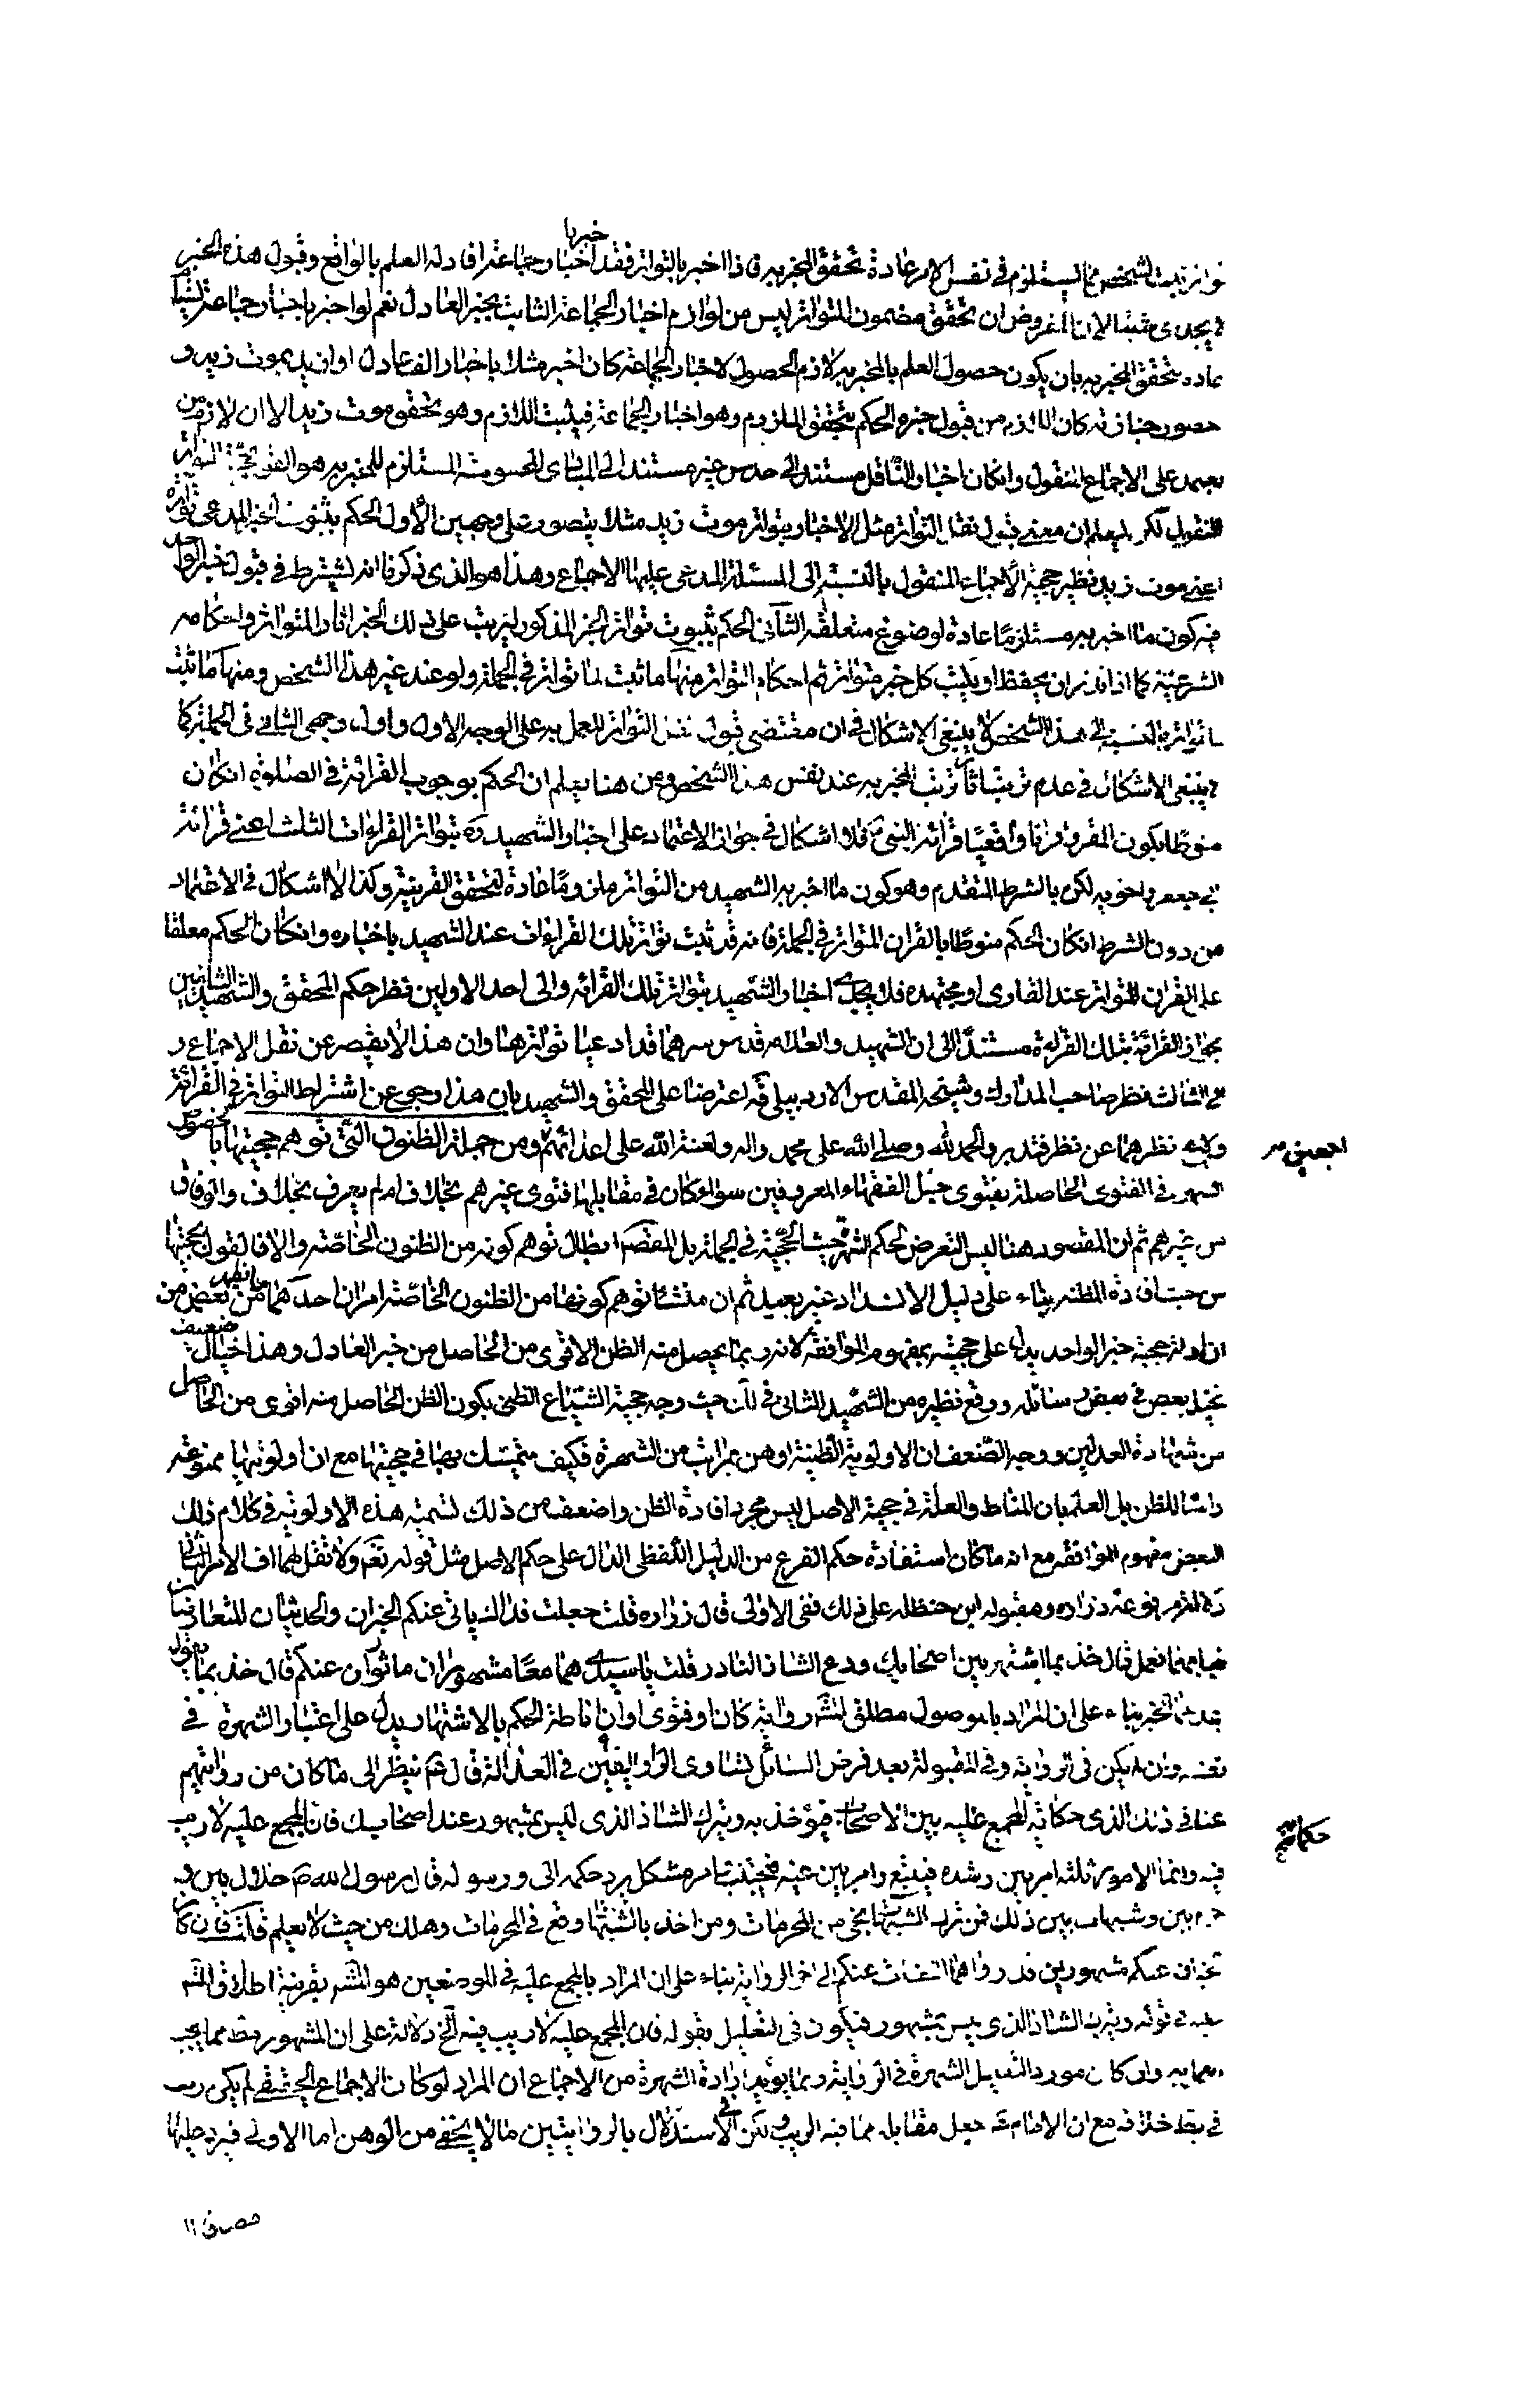 تواتر ثبت لشخص مما يستلزم في نفس الامر عادة تحقق المخبر به فاذا اخبر بالتواتر فقد اخبر باخبار جماعة افاد له العلم بالواقع وقبول هذا الخبر
لا يجدى شيئا لان المفروض ان تحقق مضمون المتواتر ليس من لوازم اخبار الجماعة الثابت بخبر العادل نعم لو اخبر باخبار جماعة يستلزم
عادة تحقق المخبر به بان يكون حصول العلم بالمخبر به لازم الحصول لاخبار الجماعة كان اخبر مثلا باخبار الف عادل او ازيد بموت زيد و
حضور جنازته كان اللازم من قبول خبره الحكم بتحقق الملزوم وهو اخبار الجماعة فيثبت اللازم وهو تحقق موت زيد الا ان لازم من
يعتمد على الاجماع المنقول وان كان اخبار الناقل مستند الى حدس غير مستند الى المبادى المحسوسة المستلزم للمخبر به هو القول بحجية التواتر
المنقول لكن ليعلم ان معنى قبول نقل التواتر مثل الاخبار بتواتر موت زيد مثلا يتصور على وجهين الأول الحكم بثبوت الخبر المدعى تواتره
اعنى موت زيد نظير حجية الاجماع المنقول بالنسبة إلى المسئلة المدعى عليها الاجماع وهذا هو الذى ذكرنا انه يشترط في قبول خبر الواحد
فيه كون ما اخبر به مستلزما عادة لوقوع متعلقه الثانى الحكم بثبوت تواتر الخبر المذكور ليرتب على ذلك الخبر اثار المتواتر واحكامه
الشرعية كما اذا نذر ان يحفظ او يكتب كل خبر متواتر ثم احكام التواتر منها ما ثبت لما تواتر في الجملة ولو عند غير هذا الشخص ومنها ما ثبت
لما تواتر بالنسبة الى هذا الشخص لا ينبغى الاشكال في ان مقتضى قبول نقل التواتر العمل به على الوجه الاول واول وجهى الثانى في الجملة كما
لا ينبغى الاشكال في عدم ترتيب اثار تواتر المخبر به عند نفس هذا الشخص ومن هنا يعلم ان الحكم بوجوب القرائة في الصلوة ان كان
منوطا بكون المقرو قرانا واقعيا قرائة النبى ص فلا اشكال في جواز الاعتماد على اخبار الشهيد ره بتواتر القراءات الثلث اعنى قرائة
ابى جعفر واخويه لكن بالشرط المتقدم وهو كون ما اخبر به الشهيد من التواتر ملزوما عادة لتحقق القرينة وكذا لا اشكال في الاعتماد
من دون الشرط ان كان الحكم منوطا بالقران المتواتر في الجملة فانه قد ثبت تواتر تلك القراءات عند الشهيد باخباره وان كان الحكم معلقا
على القران المتواتر عند القارى او مجتهده فلا يجدى اخبار الشهيد بتواتر تلك القرائة والى احد الاولين نظر حكم المحقق والشهيد الثانيين
بجواز القرائة بتلك القراءة مستندا الى ان الشهيد والعلامة قدس سرهما قد ادعيا تواترها وان هذا لا يقصر عن نقل الاجماع و
الى الثالث نظر صاحب المدارك وشيخه المقدس الاردبيلى قده اعترضا على المحقق والشهيد بان هذا رجوع عن اشتراط التواتر في القرائة
ولا يخلو نظرهما عن نظر فتدبر والحمد لله وصلى الله على محمد واله ولعنة الله على اعدائهم ومن جملة الظنون التى توهم حجيتها بالخصوص
اجمعين صح
الشهرة في الفتوى الحاصلة بفتوى جل الفقهاء المعروفين سواء كان في مقابلها فتوى غيرهم بخلاف ام لم يعرف بخلاف والوفاق
من غيرهم ثم ان المقصود هنا ليس التعرض لحكم الشهرة من حيث الحجية في الجملة بل المقصود ابطال توهم كونه من الظنون الخاصة والا فالقول بحجيتها
من حيث افادة المظنة بناء على دليل الانسداد غير بعيد ثم ان منشأ توهم كونها من الظنون الخاصة امران احدهما ما يظهر من بعض من
ان ادلة حجية خبر الواحد يدل على حجيته بمفهوم الموافقة لانه ربما يحصل منه الظن الاقوى من الحاصل من خبر العادل وهذا خيال ضعيف
تخيله بعض في بعض رسائله ووقع نظيره من الشهيد الثانى في لك حيث وجه حجية الشياع الظنى بكون الظن الحاصل منه اقوى من الحاصل
من شهادة العدلين ووجه الضعف ان الاولوية الظنية اوهن بمراتب من الشهرة فكيف يتمسك بها في حجيتها مع ان اولويتها ممنوعة
راسا للظن بل العلم بان المناط والعلة في حجية الاصل ليس مجرد افادة الظن واضعف من ذلك تسمية هذه الاولوية في كلام ذلك
البعض مفهوم الموافقة مع انه ما كان استفادة حكم الفرع من الدليل اللفظى الدال على حكم الاصل مثل قوله تعالى ولا تقل لهما اف الامر الثانى
دلالة مرفوعة زرارة ومقبولة ابن حنظلة على ذلك ففى الاولى قال زرارة قلت جعلت فداك ياتى عنكم الخبران والحديثان المتعارضان
فبايهما نعمل قال خذ بما اشتهر بين اصحابك ودع الشاذ النادر قلت يا سيدى هما معا مشهوران ماثوران عنكم قال خذ بما يقوله
اعدلهما الخبر بناء على ان المراد بالموصول مطلق المشهور رواية كان او فتوى او ان اناطة الحكم بالاشتهار يدل على اعتبار الشهرة في
نفسه وان لم يكن في الرواية وفي المقبولة بعد فرض السائل تساوى الراويين في العدالة قال ع ينظر الى ما كان من روايتهم
عنا في ذلك الذى حكما به المجمع عليه بين الاصحاب فيؤخذ به ويترك الشاذ الذى ليس بمشهور عند اصحابك فان المجمع عليه لا ريب
فيه وانما الامور ثلثة امر بين رشده فيتبع وامر بين غيه فيجتنب وامر مشكل يرد حكمه الى الله ورسوله قال رسول الله ص حلال بين و
حرام بين وشبهات بين ذلك فمن ترك الشبهات نجى من المحرمات ومن اخذ بالشبهات وقع في المحرمات وهلك من حيث لا يعلم قلت فان كان
الخبران عنكم مشهورين قد رواهما الثقات عنكم الى اخر الرواية بناء على ان المراد بالمجمع عليه في الموضعين هو المشهور بقرينة اطلاق المشهور
عليه في قوله ويترك الشاذ الذى ليس بمشهور فيكون في التعليل بقوله فان المجمع عليه لا ريب فيه الخ دلالة على ان المشهور مطلقا مما يجب
العمل به وان كان مورد التعليل الشهرة في الرواية ومما يؤيد ارادة الشهرة من الاجماع ان المراد لو كان الاجماع الحقيقى لم يكن ريب
في بطلان خلافه مع ان الامام ع جعل مقابله مما فيه الريب ولكن في الاستدلال بالروايتين ما لا يخفى من الوهن اما الاولى فيرد عليها